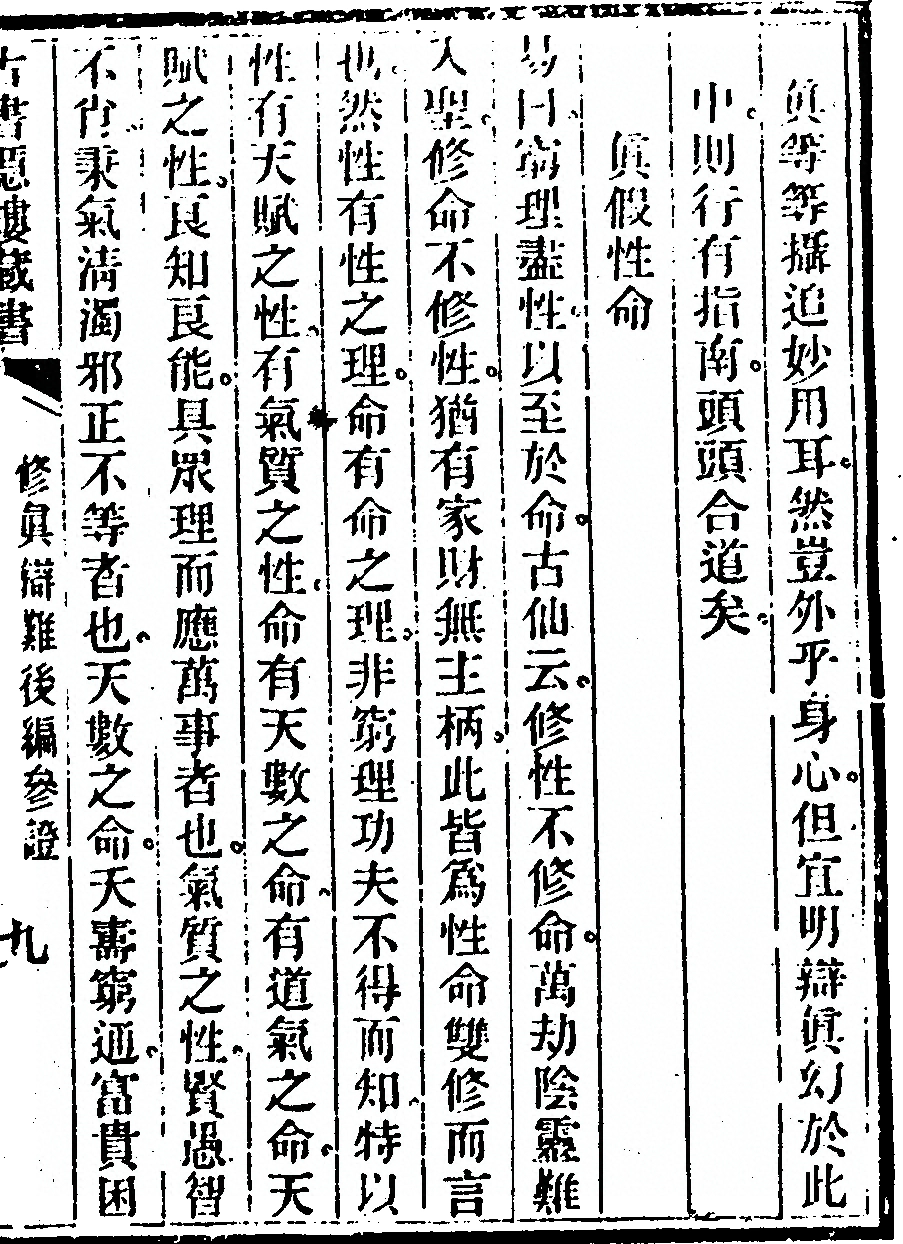 眞等等攝追妙用耳。然豈外乎身心。但宜明辯眞幻於此
中。則行有指南。頭頭合道矣。
眞假性命
易曰。窮理盡性。以至於命。古仙云。修性不修命。萬劫陰靈難
入聖。修命不修性。猶有家財無主柄。此皆爲性命雙修而言
也。然性有性之理。命有命之理。非窮理功夫不得而知。特以
性有天賦之性。有氣質之性。命有天數之命。有道氣之命。天
賦之性。良知良能。具眾理而應萬事者也。氣質之性。賢愚智
不肖。秉氣清濁邪正不等者也。天數之命。夭壽窮通。富貴困
古書隱樓藏書
修眞辯難後編參證
九